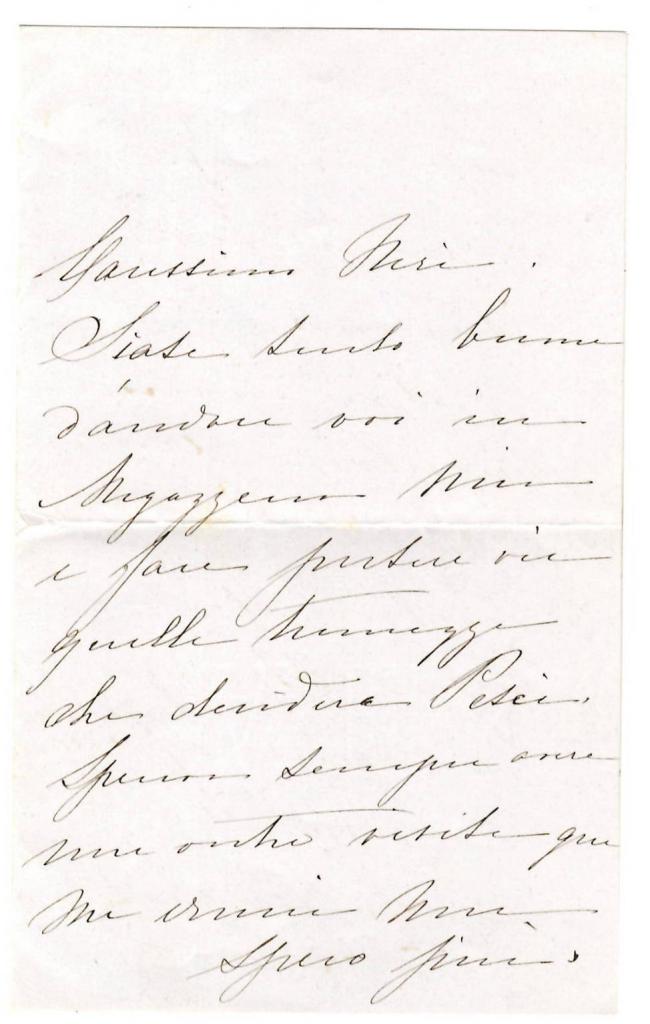 Carissimo Neri.
Siate tanto buono
d'andare voi in
Magazzeno mio
e fare portare via
quelle tramezze
che desidera Pesci.
Speravo sempre avere
una vostra visita qui
ma ormai non
spero più.